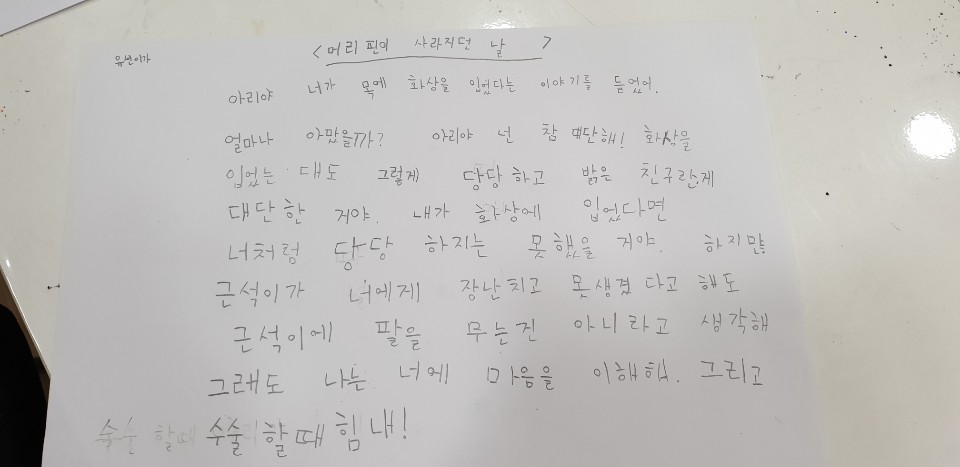 <머리핀이 사라지던 날>
아리야 너가 목에 화상을 입었다는 이야기를 듣었어.
얼마나 아팠을까? 아리야 넌 참 대단해! 화상을
입었는 대도 그렇게 당당하고 밝은 친구란게
대단한 거야. 내가 화상에 입었다면
너처럼 당당 하지는 못했을 거야. 하지만
근석이가 너에게 장난치고 못생겼다고 해도
근석이에 팔을 무는건 아니라고 생각해
그래도 나는 너에 마음을 이해해. 그리고
수술 할때 힘내!